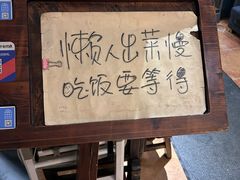 懒人出菜慢
吃饭要等得